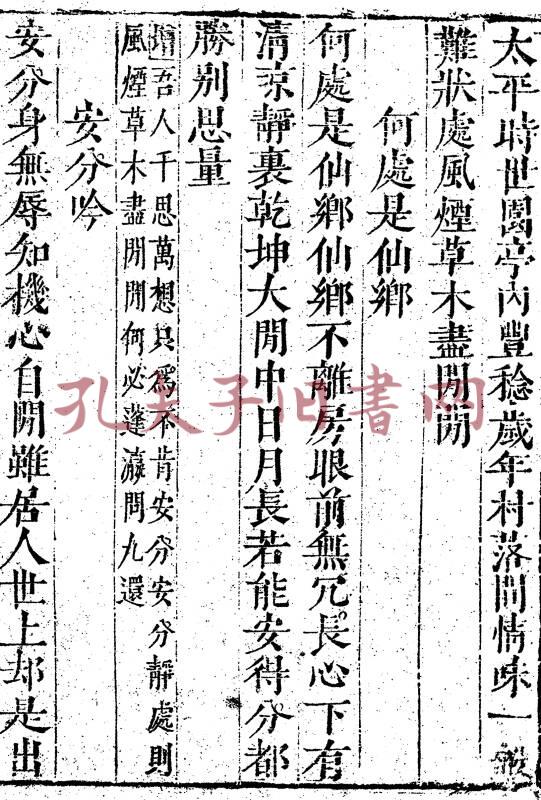 太平時世園亭內豐稔歲年村落間情味一般
難狀處風煙草木盡閒閒
何處是仙鄉
何處是仙鄉仙鄉不離房眼前無冗長心下有
清涼靜裏乾坤大閒中日月長若能安得分都
勝別思量
增吾人千思萬想只爲不肯安分安分靜處則
風煙草木盡閒閒何必蓬瀛問九還
安分吟
安分身無辱知機心自閒雖居人世上却是出
孔夫子旧书网